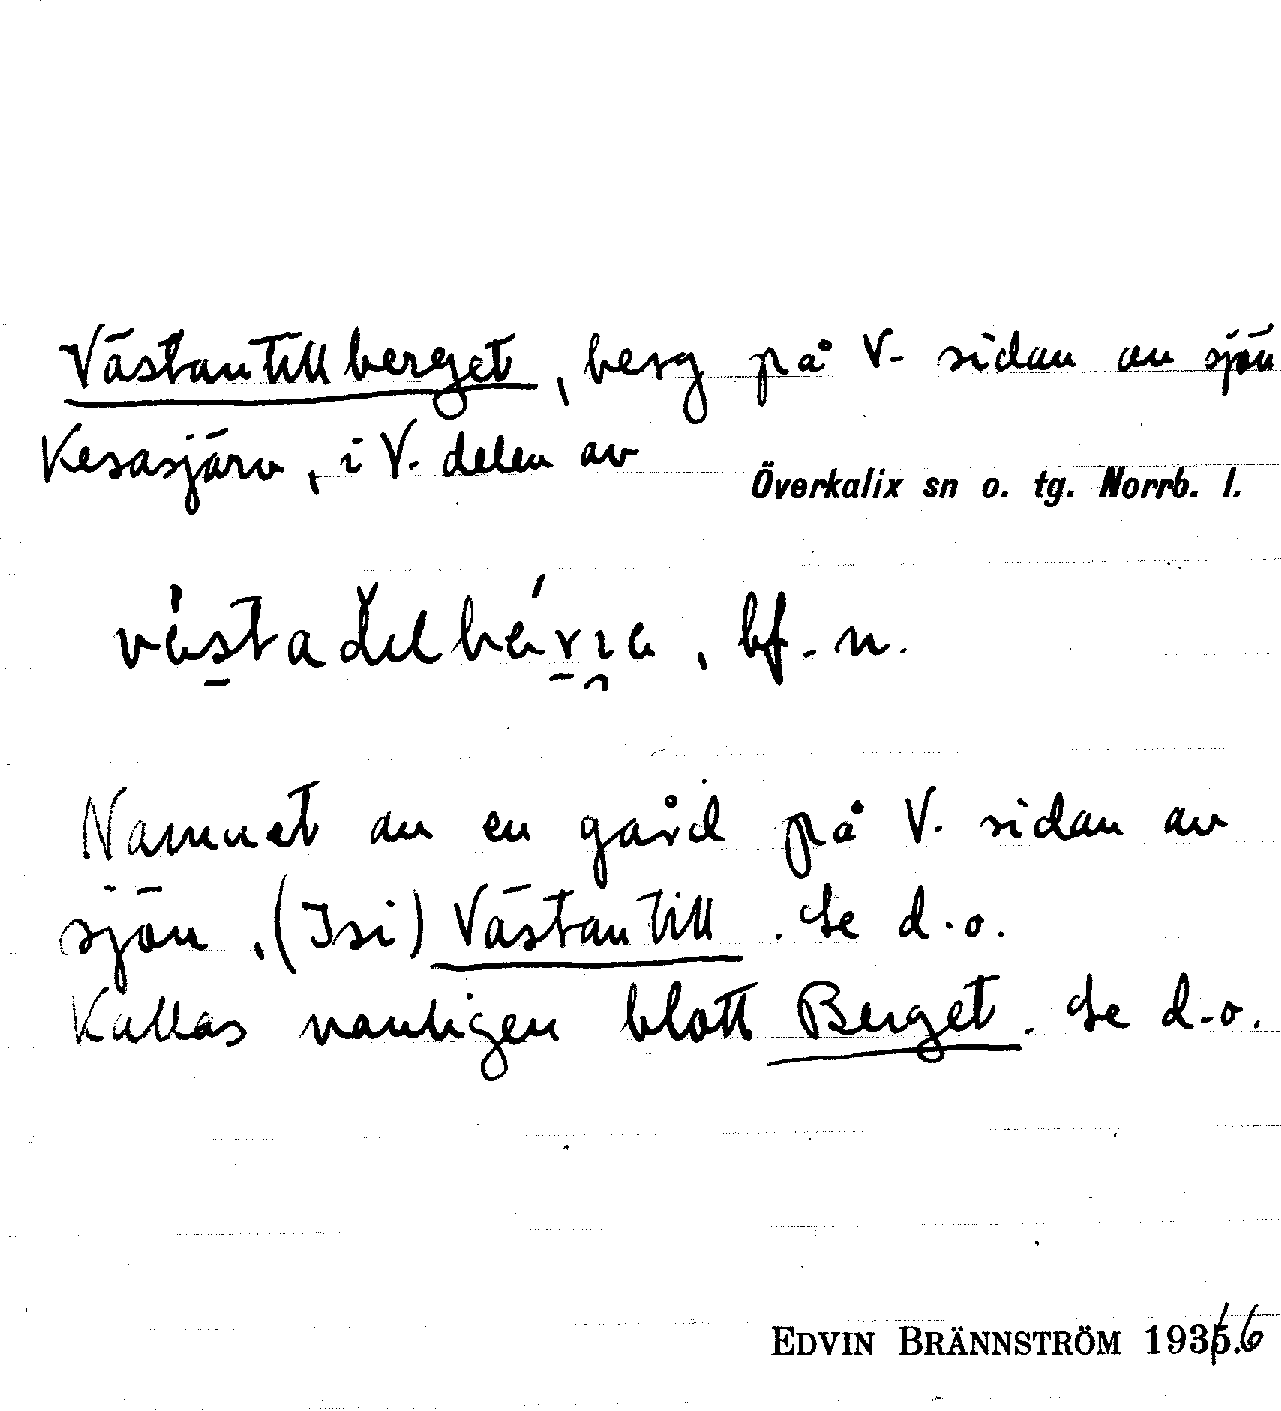 Västantillberget, berg på V. sidan av sjön
Kesasjärv, i V. delen av
Överkalix sn o. tg. Norrb. l.
bf. n.
Namnet av en gård på V. sidan av
sjön, (Isi) Västantill. Se d.o.
Kallas vanligen blott Berget. Se d.o.
EDVIN BRÄNNSTRÖM 1935.6